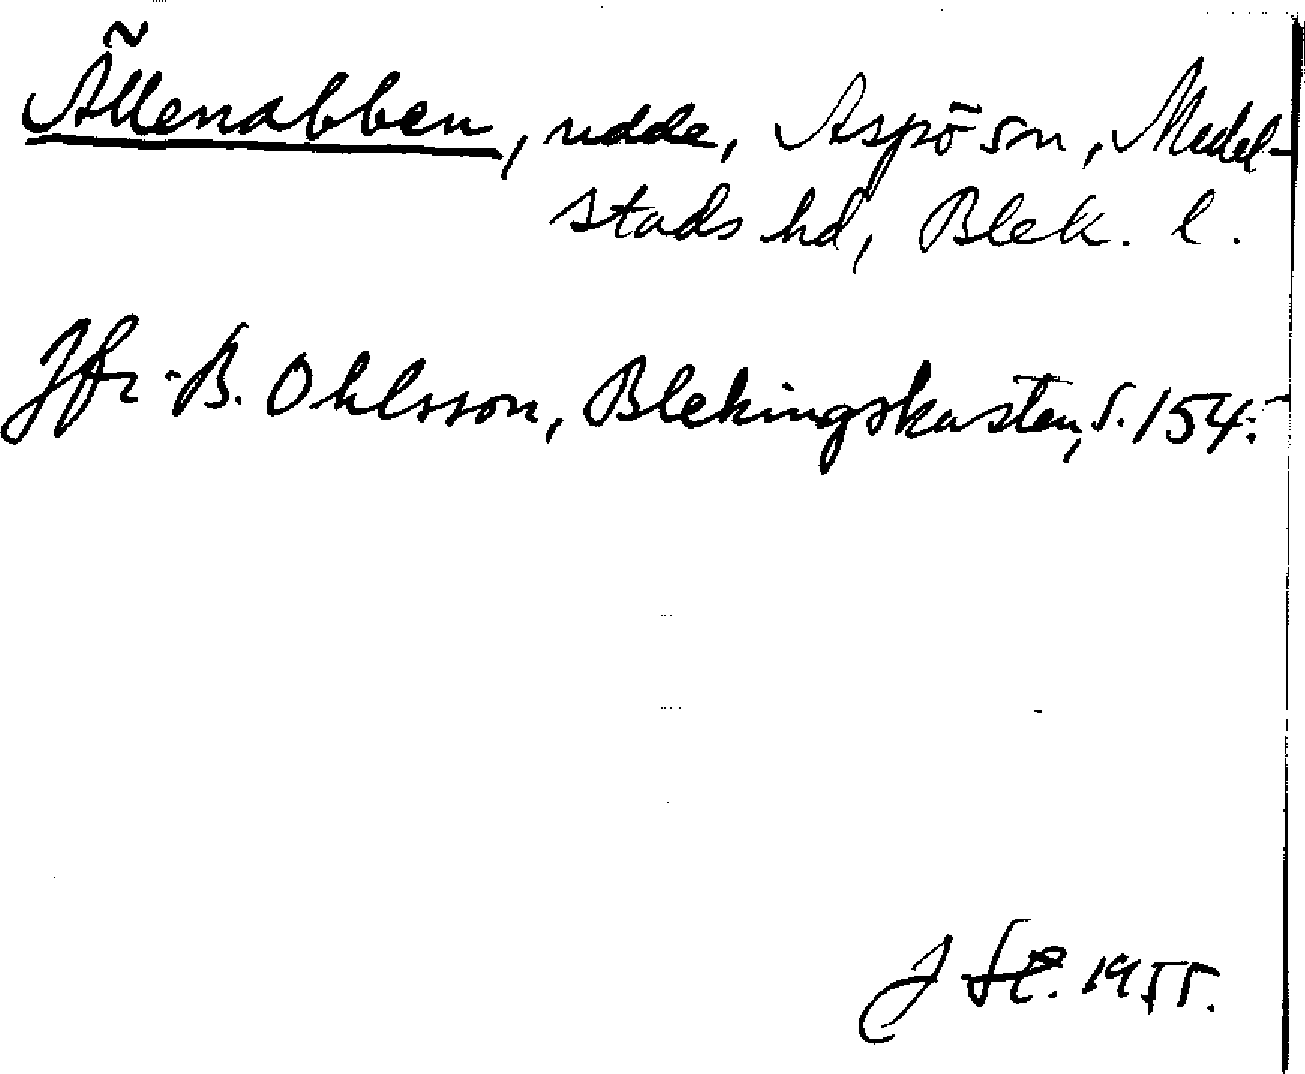 Ällenabben, udde, Aspö sn, Medel-
stads hd, Blek. l.
Jfr B. Ohlsson, Blekingskusten, s. 154.
J St. 1955.